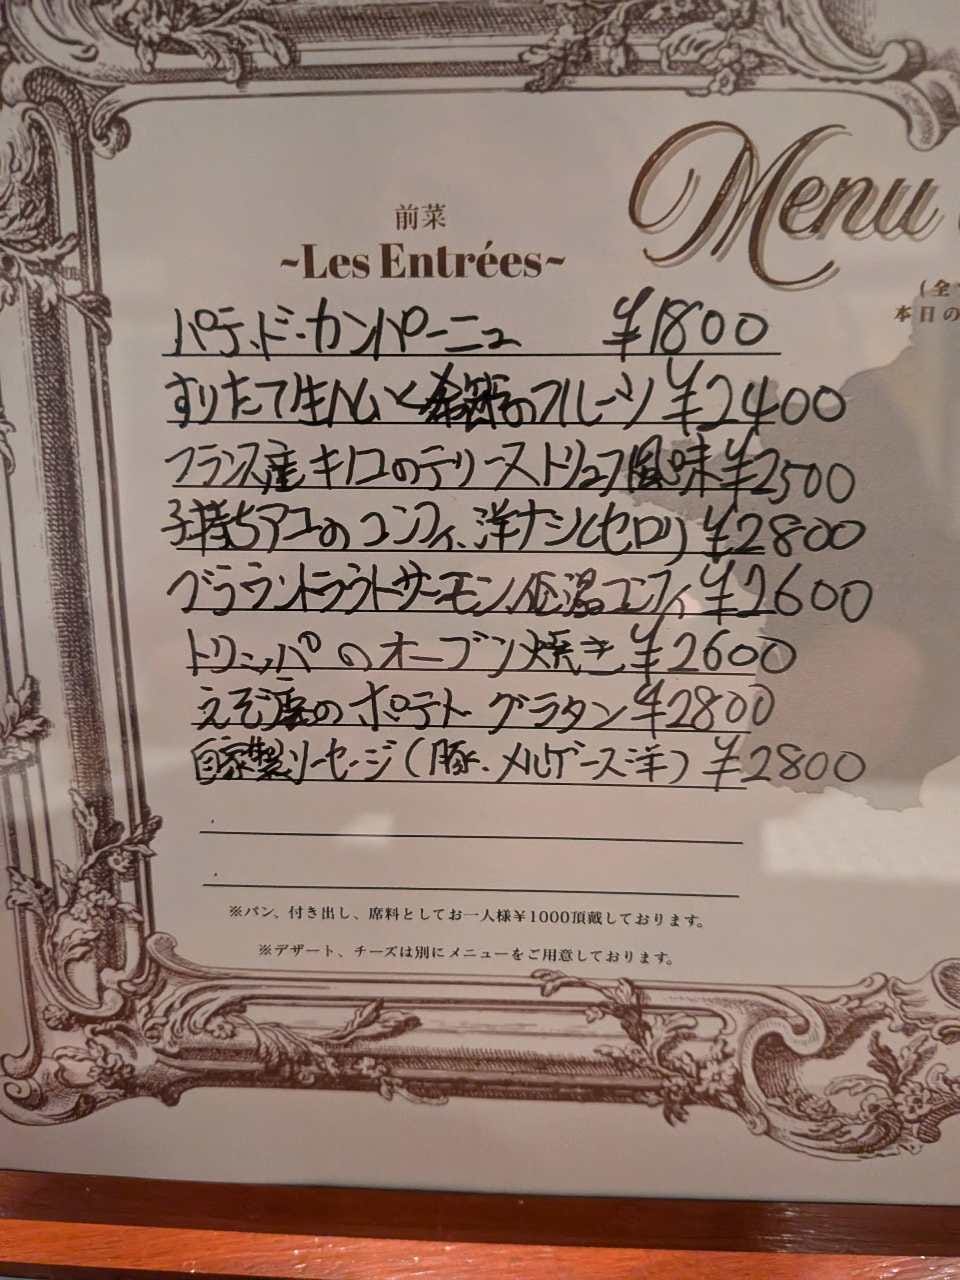 Menu
(全
本日の
前菜
~Les Entrées~
パテ・ド・カンパーニュ ¥1800
すりたて生ハムと季節のフルーツ ¥2400
フランス産キノコのテリーヌ トリュフ風味 ¥2500
子持ちアユのコンフィ、洋ナシ(セロリ) ¥2800
ブラウントラウトサーモン低温コンフィ ¥2600
トリッパのオーブン焼き ¥2600
えぞ鹿のポテトグラタン ¥2800
自家製ソーセージ(豚・メルゲース洋) ¥2800
※パン、付き出し、席料としてお一人様¥1000頂戴しております。
※デザート、チーズは別にメニューをご用意しております。